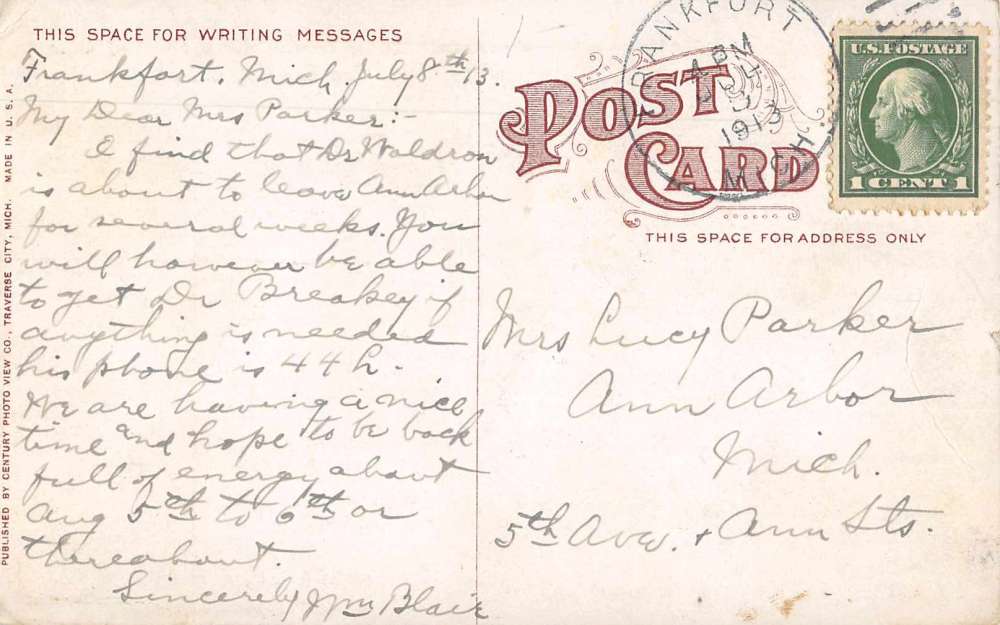 THIS SPACE FOR WRITING MESSAGES
Frankfort, Mich. July 8th 13.
My Dear Mrs Parker:-
I find that Dr Waldron
is about to leave Ann Arbor
for several weeks. You
will however be able
to get Dr Breakey if
anything is needed
his phone is 44 h.
We are having a nice
time and hope to be back
full of energy about
Aug 5th to 6th or
thereabout.
Sincerely Wm Blair
PUBLISHED BY CENTURY PHOTO VIEW CO., TRAVERSE CITY, MICH. MADE IN U.S.A.
POST
CARD
THIS SPACE FOR ADDRESS ONLY
FRANKFORT
4 PM
JUL
1913
MICH
U.S. POSTAGE
1 CENT 1
Mrs Lucy Parker
Ann Arbor
Mich.
5th Ave. + Ann Sts.